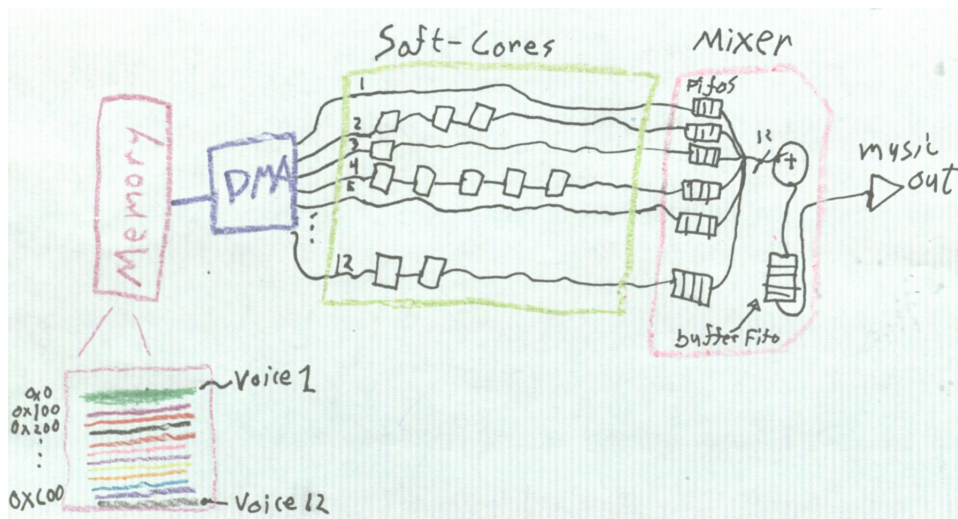 Soft-Cores
Mixer
Memory
DMA
1
2
3
4
5
12
Fifos
12
+
music
out
buffer Fifo
Voice 1
0x0
0x100
0x200
0XC00
Voice 12